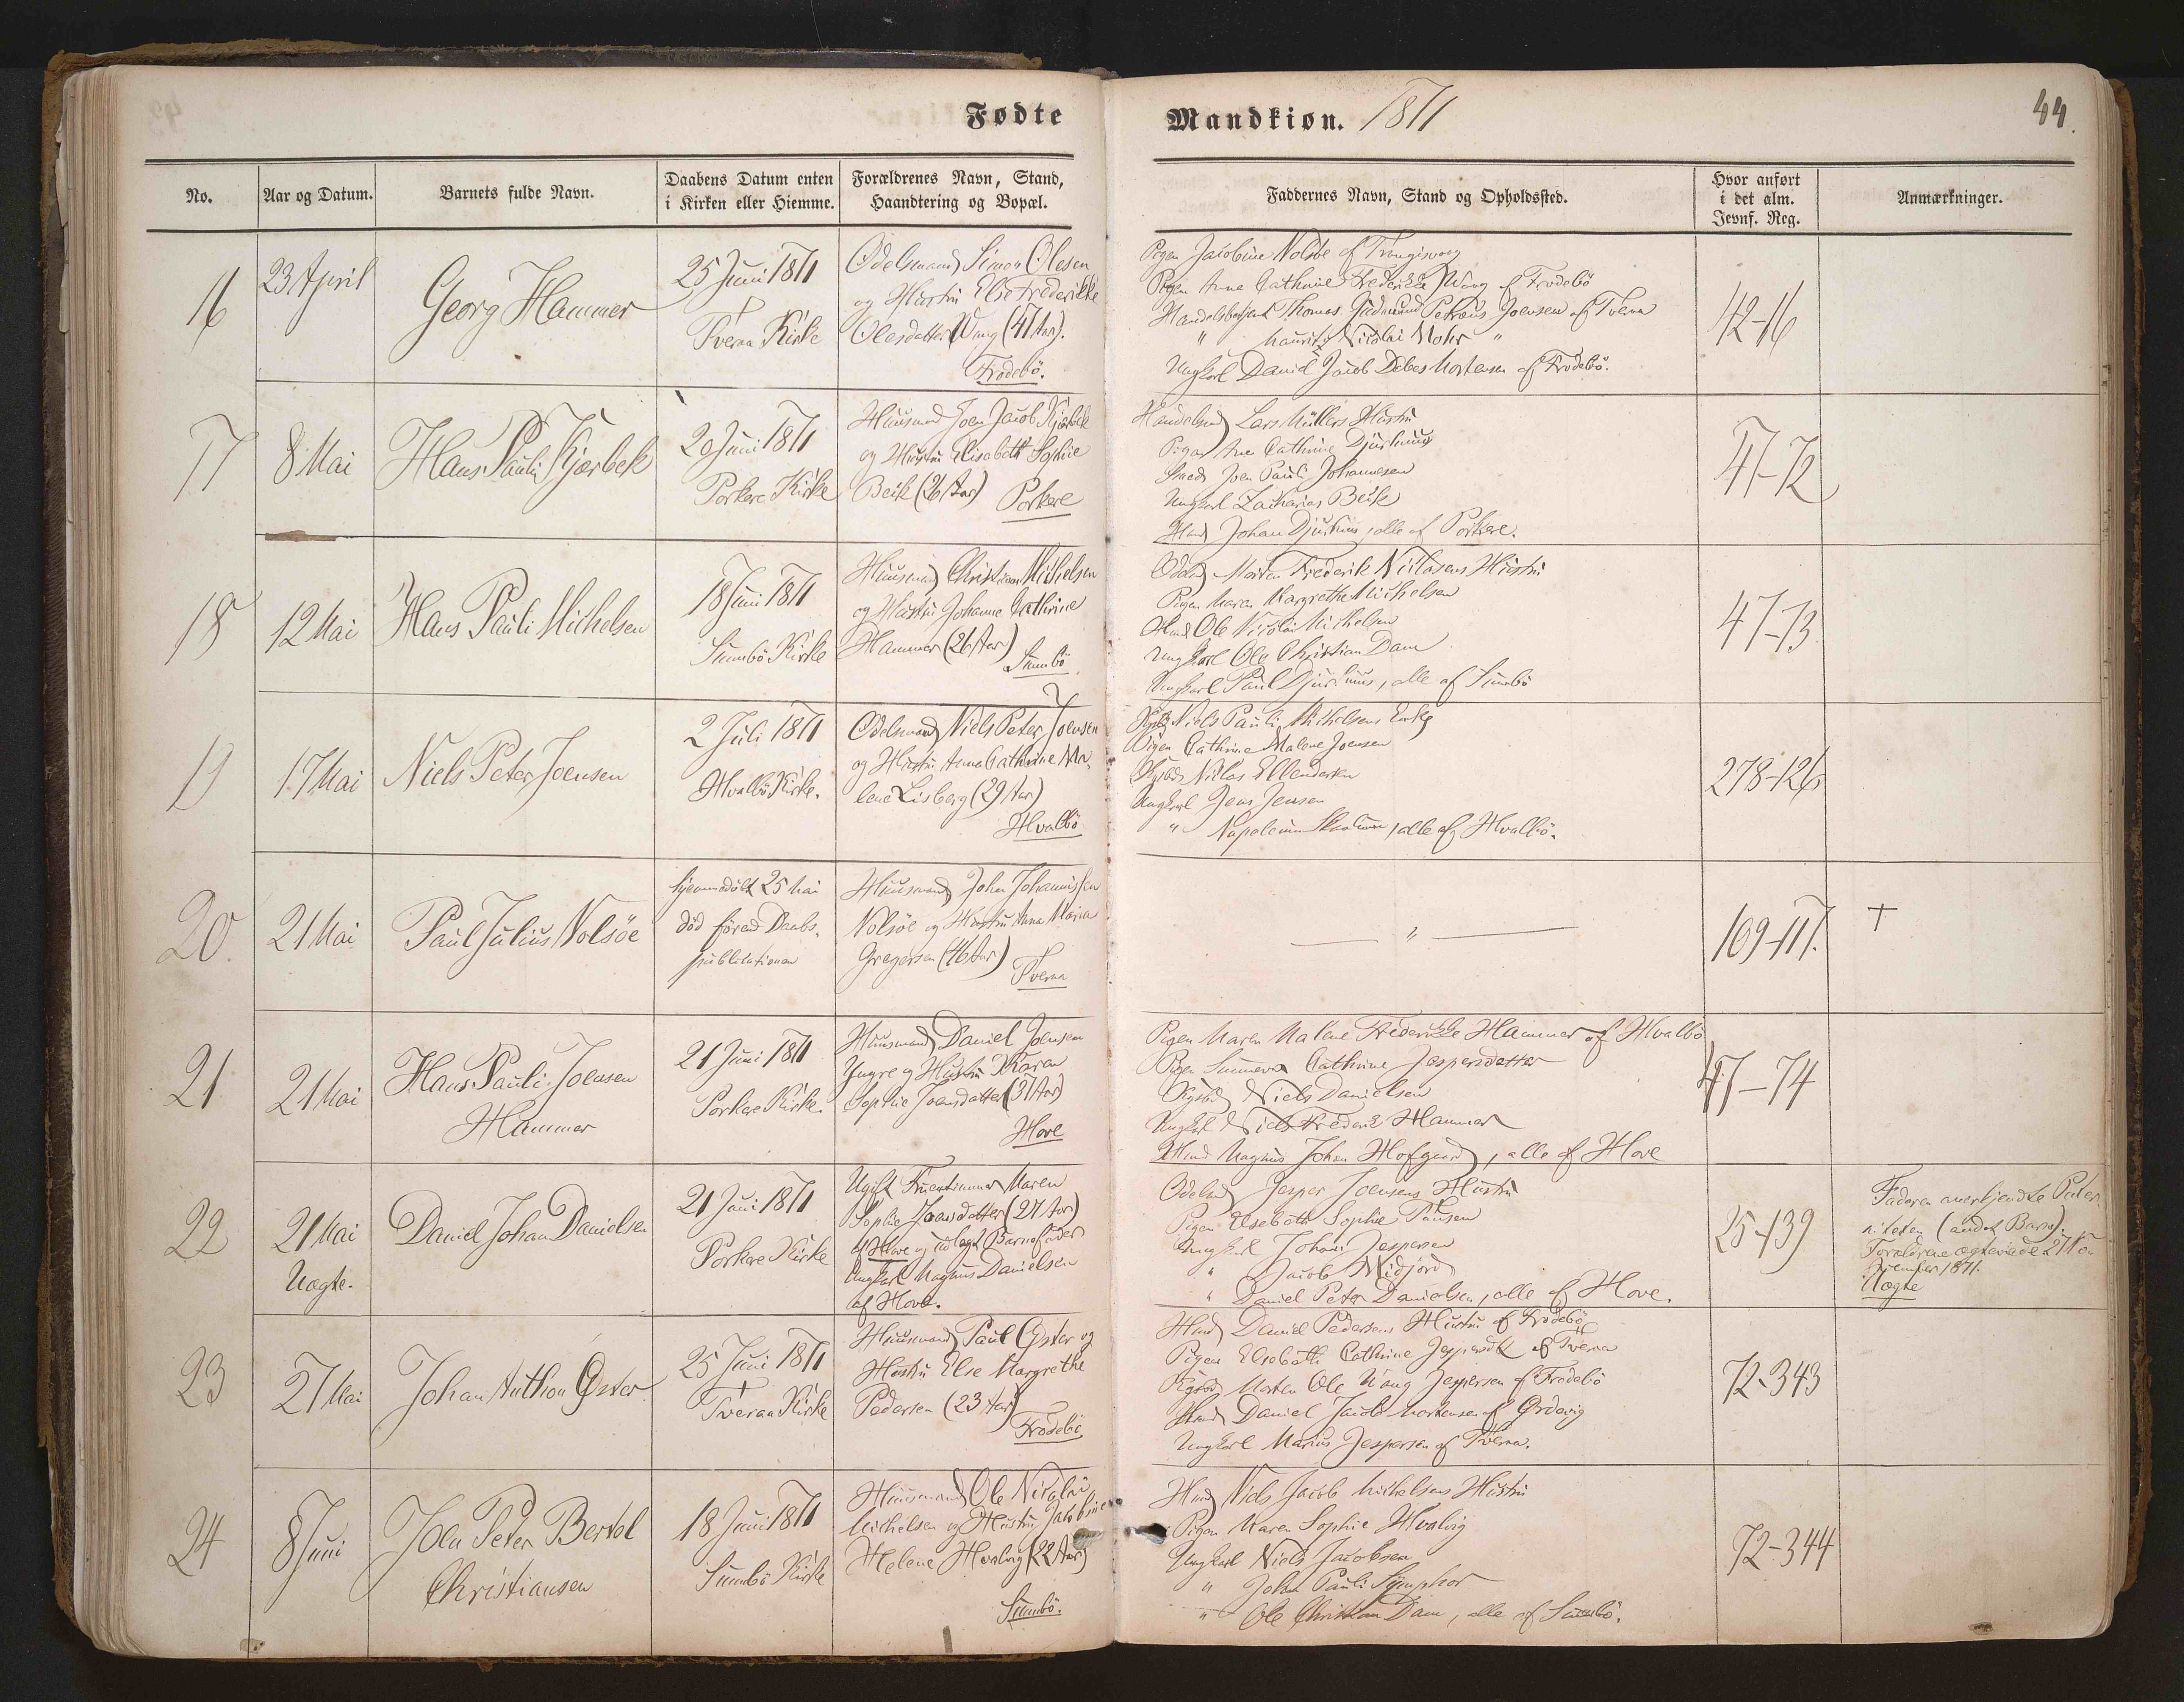 Fødte
Mandkiøn. 1871
44.
No.
Aar og Datum.
Barnets fulde Navn.
Daabens Datum enten
i Kirken eller Hiemme.
Forældrenes Navn, Stand,
Haandtering og Bopæl.
Faddernes Navn, Stand og Opholdssted.
Hvor anført
i det alm.
Jevnf. Reg.
Anmærkninger.
16
23 April
Georg Hammer
25 Juni 1871
Tveraa Kirke
Odelsmand Simon Olesen
og Hustru Else Frederikke
Olesdatter Wang (41 Aar).
Frodebö.
Pigen Jacobine Nolsöe af Trangisvaag
Pigen Anne Cathrine Frederikke Wang af Frodebö
Handelsbetjent Thomas Petræus Joensen af Tveraa
" Mauritz Nicolai Mohr "
Ungkarl Daniel Jacob Debes Mortensen af Frodebö.
42-16
17
8 Mai
Hans Pauli Kjærbek
20 Juni 1871
Porkere Kirke
Huusmand Joen Jacob Kjærbek
og Hustru Elisabeth Sophie
Beck (26 Aar) Porkere
Handelsmd Lars Müllers Hustru
Pigen Ane Cathrine Djurhuus
Joen Pauli Johannesen
Ungkarl Zacharias Beck
Hmd Johan Djurhuus, alle af Porkere.
47-72
18
12 Mai
Hans Pauli Michelsen
18 Juni 1871
Sumbö Kirke
Huusmand Christian Michelsen
og Hustru Johanne Cathrine
Hammer (26 Aar)
Sumbö
Odelsmd Morten Frederik Niclasens Hustru
Pigen Maren Margrethe Michelsen
Hmd Ole Nicolai Michelsen
Ungkarl Ole Christian Dam
Ungkarl Paul Djurhuus, alle af Sumbö
47-73
19
17 Mai
Niels Peter Joensen
2 Juli 1871
Hvalbö Kirke.
Odelsmand Niels Peter Joensen
og Hustru Anna Cathrine Ma-
lene Lisberg (29 Aar)
Hvalbö
Niels Pauli Michelsens Enke
Pigen Cathrine Malene Joensen
Niclas Ellendersen
Ungkarl Jens Jensen
" Napoleon , alle af Hvalbö.
278-126
20
21 Mai
Paul Julius Nolsöe
hjemmedöbt 25 Mai
död förend Daabs-
publicationen
Huusmand John Johannissen
Nolsöe og Hustru Anna Maria
Gregersen (46 Aar)
Tveraa
"
169-117.
†
21
21 Mai
Hans Pauli Joensen
Hammer
21 Juni 1871
Porkere Kirke.
Huusmand Daniel Joensen
Yngre og Hustru Karen
Sophie Joensdatter (31 Aar)
Hove
Pigen Maren Malene Frederikke Hammer af Hvalbö
Pigen Sunneva Cathrine Jespersdatter
Niels Danielsen
Ungkarl Niels Frederik Hammer
Hmd Magnus Johan Hofgaard, alle af Hove
47-74
22
21 Mai
Uægte.
Daniel Johan Danielsen
21 Juni 1871
Porkere Kirke
Ugift Fruentimmer Maren
Sophie Joensdatter (27 Aar)
af Hove og udlagt Barnefader
Ungkarl Magnus Danielsen
af Hove.
Odelsmd Jesper Joensens Hustru
Pigen Elsebeth Sophie Poulsen
Ungkarl Johan Jespersen
" Jacob Midjord
" Daniel Peter Danielsen, alle af Hove.
25-139
Faderen anerkjendte Pater-
niteten (andet Barn).
Forældrene ægteviede 27 No-
vember 1871.
Uægte
23
27 Mai
Johan Anthon Øster
25 Juni 1871
Tveraa Kirke
Huusmand Paul Øster og
Hustru Else Margrethe
Pedersen (23 Aar)
Frodebö
Hmd Daniel Pedersens Hustru af Frodebö
Pigen Elsebeth Cathrine Jespersdt af Tveraa
Morten Ole Wang Jespersen af Frodebö
Hmd Daniel Jacob Mortensen af Ørdevig
Ungkarl Marius Jespersen af Tveraa.
72-343
24
8 Juni
Joen Peter Bertel
Christiansen
18 Juni 1871
Sumbö Kirke
Huusmand Ole Nicolai
Michelsen og Hustru Jacobine
Helene Hvalvig (22 Aar)
Sumbö.
Hmd Niels Jacob Michelsens Hustru
Pigen Maren Sophie Hvalvig
Ungkarl Niels Jacobsen
" Johan Pauli Symphor
" Ole Christian Dam, alle af Sumbö.
72-344